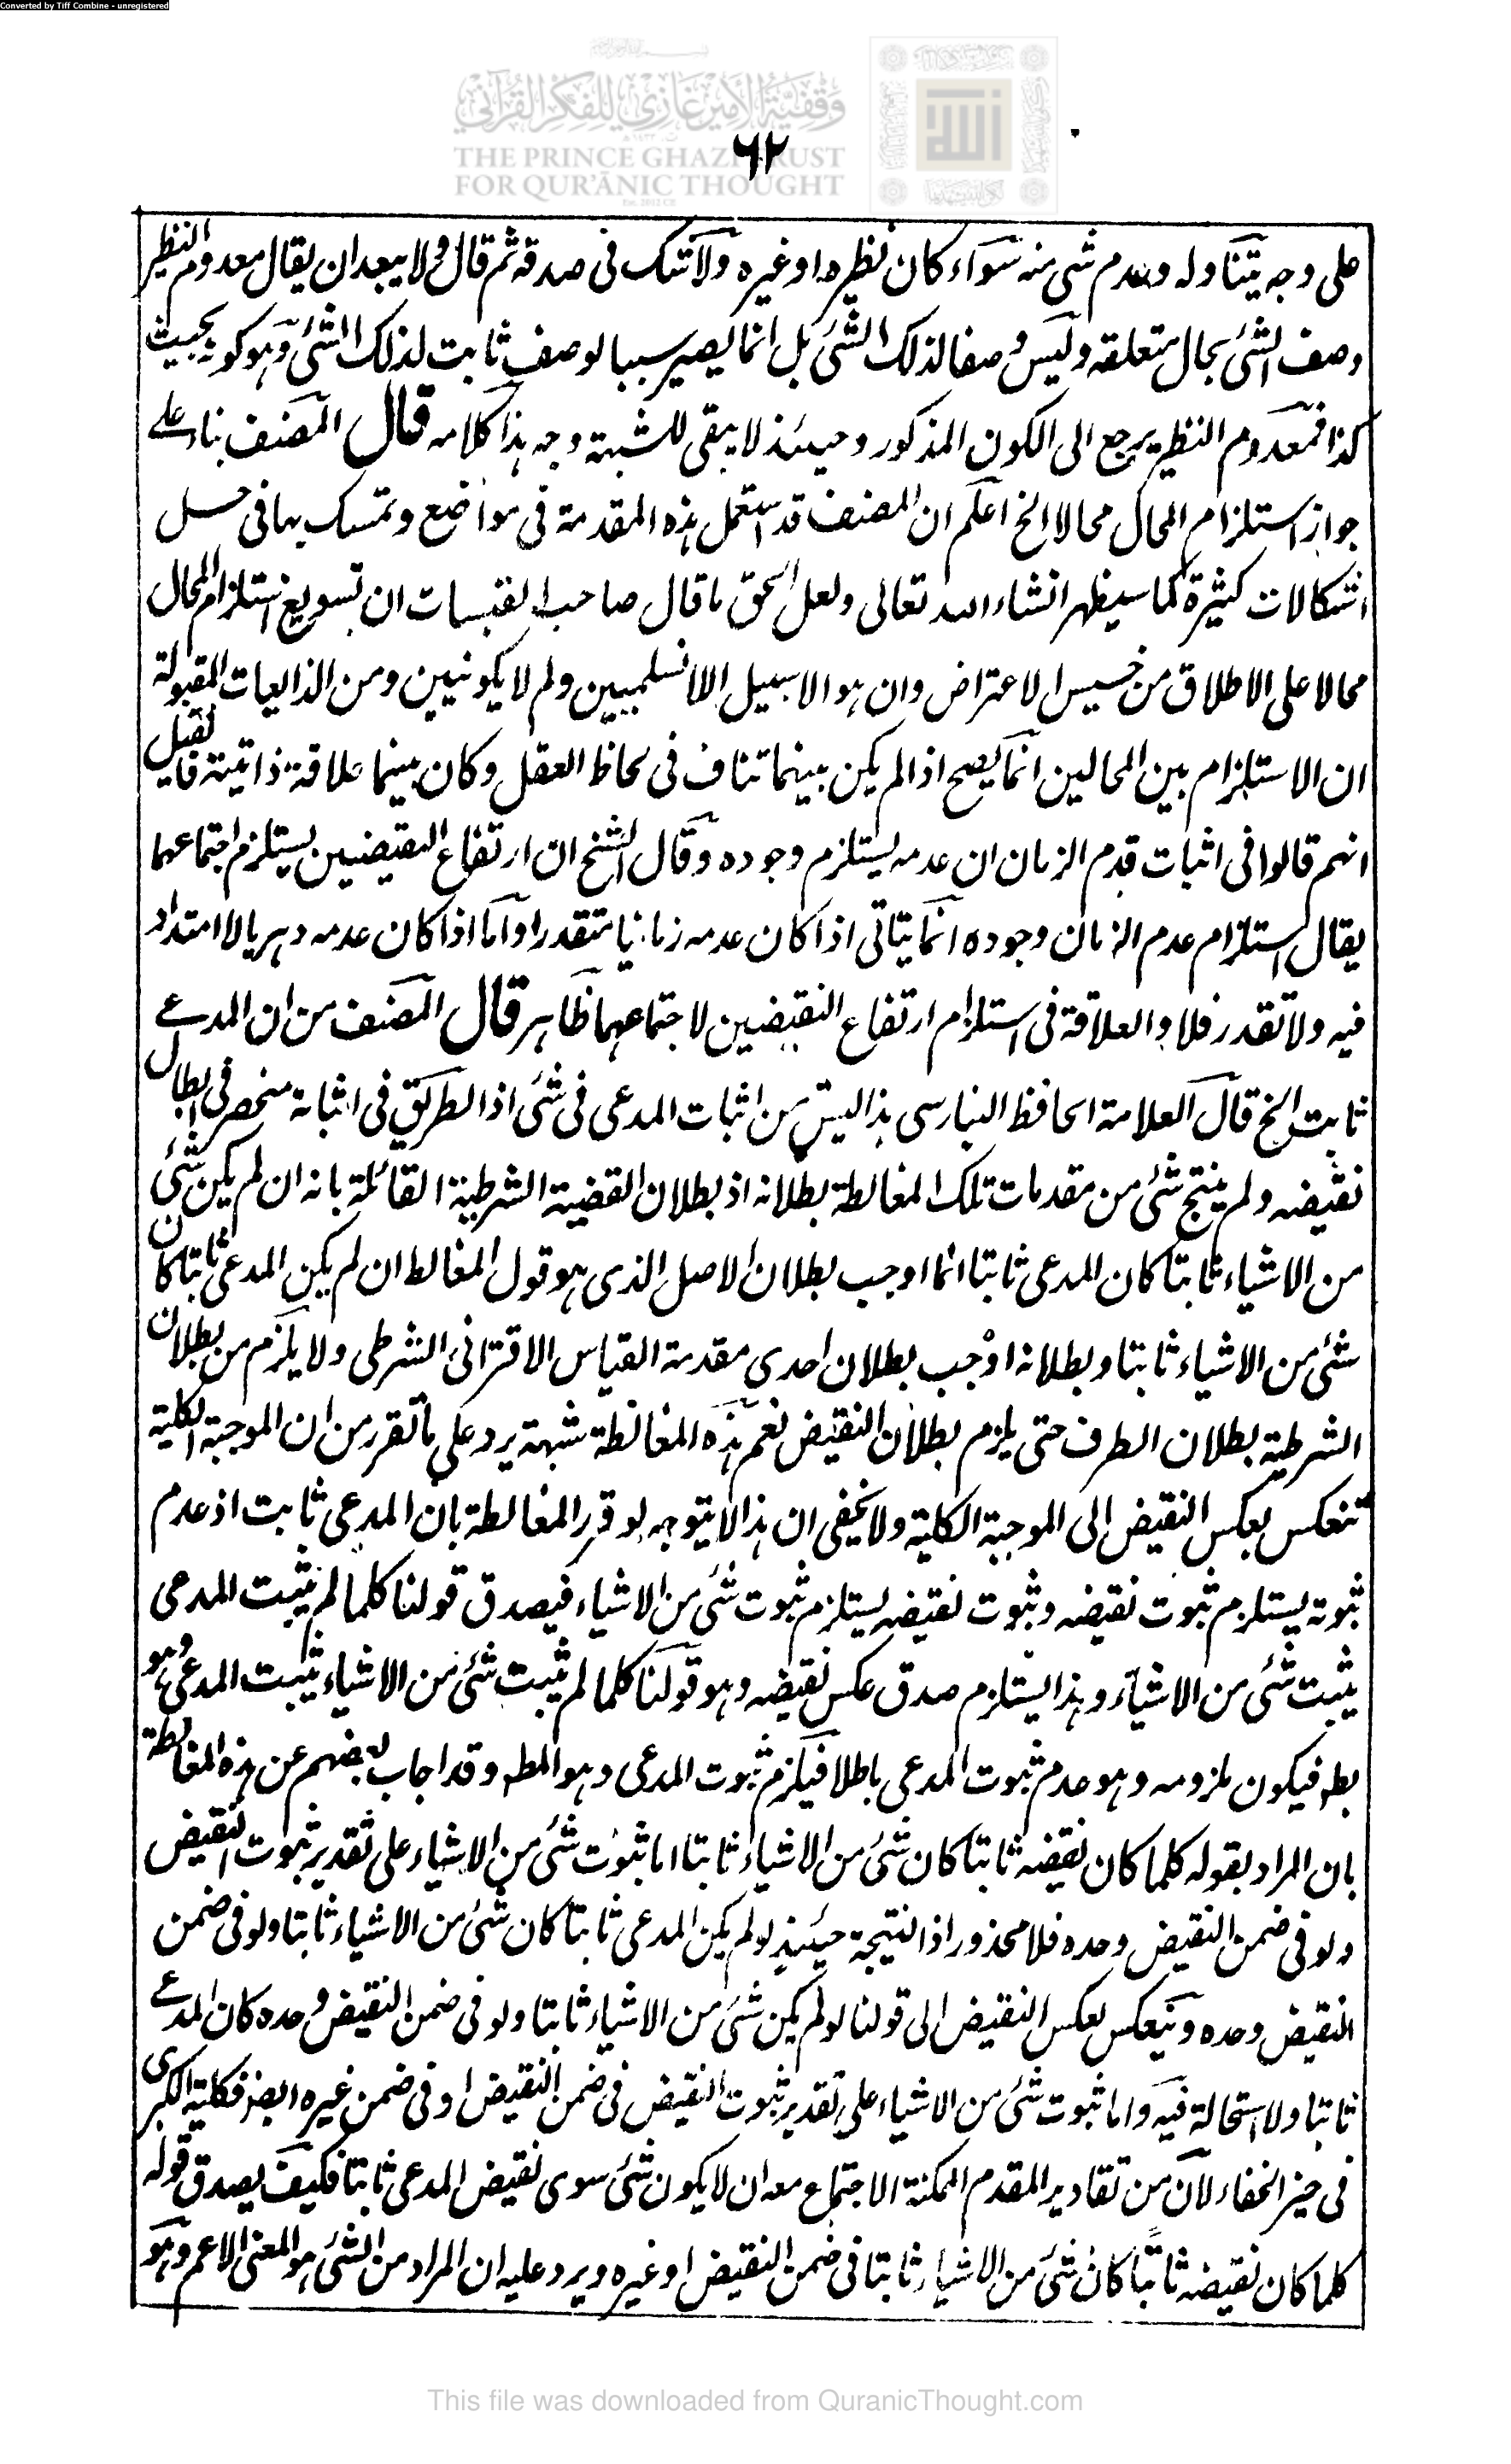 Converted by Tiff Combine - unregistered
وقفية الأمير غازي للفكر القرآني
THE PRINCE GHAZI TRUST
FOR QUR'ĀNIC THOUGHT
٦٢
على وجه يتناوله وعدم شئ منه سواء كان نظيره او غيره ولاشك فى صدقه ثم قال ولا يبعد ان يقال معدوم النظير
وصف الشئ بحال متعلقه وليس وصفا لذلك الشئ بل انما يصير سببا لوصف ثابت لذلك الشئ وهو كونه بحيث
كذا فمعدوم النظير يرجع الى الكون المذكور وحينئذ لا يبقى للشبهة وجه هذا كلامه قال المصنف بناء على
جواز استلزام المحال محالا الخ اعلم ان المصنف قد استعمل هذه المقدمة فى مواضع وتمسك بها فى حل
اشكالات كثيرة كما سيظهر انشاء الله تعالى ولعل الحق ما قال صاحب القبسات ان تسويغ استلزام المحال
محالا على الاطلاق من خسيس الاعتراض وان هو الا سبيل اللانسلميين ولم لا يكونيين ومن الذايعات المقبولة
ان الاستلزام بين المحالين انما يصح اذا لم يكن بينهما تناف فى لحاظ العقل وكان بينهما علاقة ذاتية فان قيل
انهم قالوا فى اثبات قدم الزمان ان عدمه يستلزم وجوده وقال الشيخ ان ارتفاع النقيضين يستلزم اجتماعهما
يقال استلزام عدم الزمان وجوده انما يتاتى اذا كان عدمه زمانيا متقدرا واما اذا كان عدمه دهريا لا امتداد
فيه ولا تقدر فلا والعلاقة فى استلزام ارتفاع النقيضين لاجتماعهما ظاهر قال المصنف من ان المدعى
ثابت الخ قال العلامة الحافظ البنارسى هذا ليس من اثبات المدعى فى شئ اذ الطريق فى اثباته منحصر فى ابطال
نقيضه ولم ينتج شئ من مقدمات تلك المغالطة بطلانه اذ بطلان القضية الشرطية القائلة بانه ان لم يكن شئ
من الاشياء ثابتا كان المدعى ثابتا انما اوجب بطلان الاصل الذى هو قول المغالط ان لم يكن المدعى ثابتا كان
شئ من الاشياء ثابتا وبطلانه اوجب بطلان احدى مقدمة القياس الاقترانى الشرطى ولا يلزم من بطلان
الشرطية بطلان الطرف حتى يلزم بطلان النقيض نعم هذه المغالطة شبهة يرد على ما تقرر من ان الموجبة الكلية
تنعكس بعكس النقيض الى الموجبة الكلية ولا يخفى ان هذا لا يتوجه لو قرر المغالطة بان المدعى ثابت اذ عدم
ثبوته يستلزم ثبوت نقيضه وثبوت نقيضه يستلزم ثبوت شئ من الاشياء فيصدق قولنا كلما لم يثبت المدعى
يثبت شئ من الاشياء وهذا يستلزم صدق عكس نقيضه وهو قولنا كلما لم يثبت شئ من الاشياء يثبت المدعى وهو
بط فيكون ملزومه وهو عدم ثبوت المدعى باطلا فيلزم ثبوت المدعى وهو المط وقد اجاب بعضهم عن هذه المغالطة
بان المراد بقوله كلما كان نقيضه ثابتا كان شئ من الاشياء ثابتا اما ثبوت شئ من الاشياء على تقدير ثبوت النقيض
ولو فى ضمن النقيض وحده فلا محذور اذ النتيجة حينئذ لو لم يكن المدعى ثابتا كان شئ من الاشياء ثابتا ولو فى ضمن
النقيض وحده وينعكس بعكس النقيض الى قولنا لو لم يكن شئ من الاشياء ثابتا ولو فى ضمن النقيض وحده كان المدعى
ثابتا ولا استحالة فيه واما ثبوت شئ من الاشياء على تقدير ثبوت النقيض فى ضمن النقيض او فى ضمن غيره ايضا فكلية الكبرى
فى حيز الخفاء لان من تقادير المقدم الممكنة الاجتماع معه ان لا يكون شئ سوى نقيض المدعى ثابتا فكيف يصدق قوله
كلما كان نقيضه ثابتا كان شئ من الاشياء ثابتا فى ضمن النقيض او غيره ويرد عليه ان المراد من الشئ هو المعنى الاعم وهو
This file was downloaded from QuranicThought.com